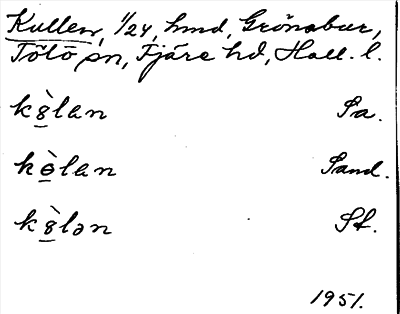 Kullen, 1/24, hmd, Grönabur,
Tölö sn, Fjäre hd, Hall. l.
k8̲̀lan Sa.
kɵ̲̀lan Sand.
k8̲̀lən St.
1951.